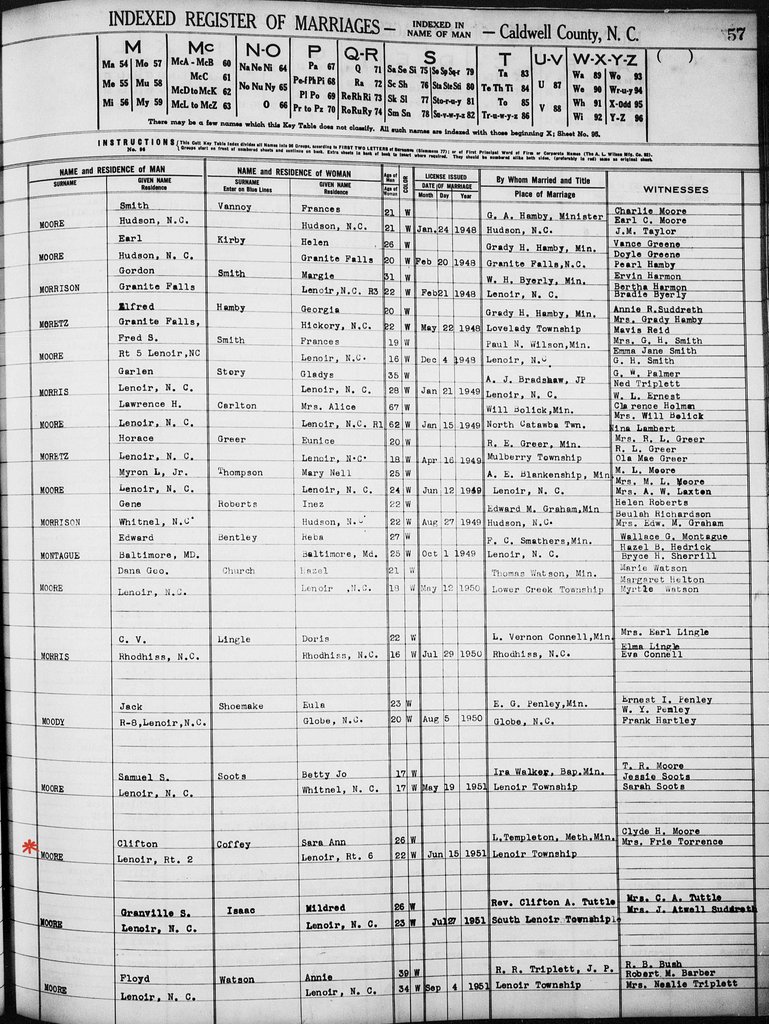 INDEXED REGISTER OF MARRIAGES— INDEXED IN NAME OF MAN — Caldwell County, N. C. 57
M Mc N-O P Q-R S T U-V W-X-Y-Z ( )
Ma 54 Mo 57 McA - McB 60 Na Ne Ni 64 Pa 67 Q 71 Sa Se Si 75 So Sp Sq-r 79 Ta 83 Wa 89 Wo 93
McC 61
Me 55 Mu 58 McD to McK 62 No Nu Ny 65 Pe-f Ph Pi 68 Ra 72 Sc Sh 76 Sta Ste Sti 80 Te Th Ti 84 U 87 We 90 Wr-u-y 94
Pl Po 69 Re Rh Ri 73 Sk Sl 77 Sto-r-u-y 81 To 85 Wh 91 X-odd 95
Mi 56 My 59 McL to McZ 63 O 66 Pr to Pz 70 Ro Ru Ry 74 Sm Sn 78 Su-v-w-y-z 82 Tr-u-w-y-z 86 V 88 Wi 92 Y-Z 96
There may be a few names which this Key Table does not classify. All such names are indexed with those beginning X; Sheet No. 95.
INSTRUCTIONS
NAME and RESIDENCE of MAN NAME and RESIDENCE of WOMAN Age of Man COLOR LICENSE ISSUED By Whom Married and Title WITNESSES
SURNAME GIVEN NAME Residence SURNAME Enter on Blue Lines GIVEN NAME Residence Age of Woman DATE OF MARRIAGE Month Day Year Place of Marriage
Smith Vannoy Frances 21 W G. A. Hamby, Minister Charlie Moore
Earl C. Moore
MOORE Hudson, N.C. Hudson, N.C. 21 W Jan. 24 1948 Hudson, N.C. J.M. Taylor
Earl Kirby Helen 26 W Grady H. Hamby, Min. Vance Greene
Doyle Greene
MOORE Hudson, N. C. Granite Falls 20 W Feb 20 1948 Granite Falls,N.C. Pearl Hamby
Gordon Smith Margie 31 W W. H. Byerly, Min. Ervin Harmon
Bertha Harmon
MORRISON Granite Falls Lenoir,N.C. R3 22 W Feb 21 1948 Lenoir, N. C. Bradie Byerly
Elfred Hamby Georgia 20 W Grady H. Hamby, Min. Annie R.Suddreth
Mrs. Grady Hamby
MORETZ Granite Falls, Hickory, N.C. 22 W May 22 1948 Lovelady Township Mavis Reid
Fred S. Smith Frances 19 W Paul N. Wilson,Min. Mrs. G. H. Smith
Emma Jane Smith
MOORE Rt 5 Lenoir,NC Lenoir, N.C. 16 W Dec 4 1948 Lenoir, N.C G. H. Smith
Garlen Story Gladys 35 W A. J. Bradshaw, JP G. W. Palmer
Ned Triplett
MORRIS Lenoir, N. C. Lenoir, N. C. 28 W Jan 21 1949 Lenoir, N. C. W. L. Ernest
Lawrence H. Carlton Mrs. Alice 67 W Will Bolick,Min. Clarence Holman
Mrs. Will Bolick
MOORE Lenoir, N. C. Lenoir, N.C. R1 62 W Jan 15 1949 North Catawba Twn. Nina Lambert
Horace Greer Eunice 20 W R. E. Greer, Min. Mrs. R. L. Greer
R. L. Greer
MORETZ Lenoir, N. C. Lenoir, N.C. 18 W Apr 16 1949 Mulberry Township Ola Mae Greer
Myron L, Jr. Thompson Mary Nell 25 W A. E. Blankenship, Min M. L. Moore
Mrs. M. L. Moore
MOORE Lenoir, N. C. Lenoir, N. C. 24 W Jun 12 1949 Lenoir, N. C. Mrs. A. W. Laxton
Gene Roberts Inez 22 W Edward M. Graham,Min Helen Roberts
Beulah Richardson
MORRISON Whitnel, N.C. Hudson, N.C. 22 W Aug 27 1949 Hudson, N.C. Mrs. Edw. M. Graham
Edward Bentley Reba 27 W F. C. Smathers,Min. Wallace G. Montague
Hazel B. Hedrick
MONTAGUE Baltimore, MD. Baltimore, Md. 25 W Oct 1 1949 Lenoir, N. C. Bryce H. Sherrill
Dana Geo. Church Hazel 21 W Thomas Watson, Min. Marie Watson
Margaret Helton
MOORE Lenoir, N.C. Lenoir ,N.C. 18 W May 12 1950 Lower Creek Township Myrtle Watson
C. V. Lingle Doris 22 W L. Vernon Connell,Min. Mrs. Earl Lingle
Elma Lingle
MORRIS Rhodhiss, N.C. Rhodhiss, N.C. 16 W Jul 29 1950 Rhodhiss, N.C. Eva Connell
Jack Shoemake Eula 23 W E. G. Penley,Min. Ernest I. Penley
W. Y. Penley
MOODY R-8,Lenoir,N.C. Globe, N.C. 20 W Aug 5 1950 Globe, N.C. Frank Hartley
Samuel S. Soots Betty Jo 17 W Ira Walker, Bap.Min. T. R. Moore
Jessie Soots
MOORE Lenoir, N. C. Whitnel, N. C. 17 W May 19 1951 Lenoir Township Sarah Soots
Clifton Coffey Sara Ann 26 W L.Templeton, Meth.Min. Clyde H. Moore
Mrs. Frie Torrence
* MOORE Lenoir, Rt. 2 Lenoir, Rt. 6 22 W Jun 15 1951 Lenoir Township
Granville S. Isaac Mildred 26 W Rev. Clifton A. Tuttle Mrs. C. A. Tuttle
Mrs. J. Atwell Suddreth
MOORE Lenoir, N. C. Lenoir, N.C. 23 W Jul 27 1951 South Lenoir Township
Floyd Watson Annie 39 W R. R. Triplett, J. P. R. B. Bush
Robert M. Barber
MOORE Lenoir, N. C. Lenoir, N. C. 34 W Sep 4 1951 Lenoir Township Mrs. Nealie Triplett